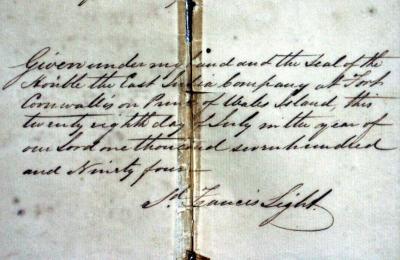 Given under my hand and the seal of the
Honble the East India Company at Fort
Cornwallis on Prince of Wales Island, this
twenty eighth day of July in the year of
our Lord one thousand seven hundred
and Ninety four
Sd. Francis Light.